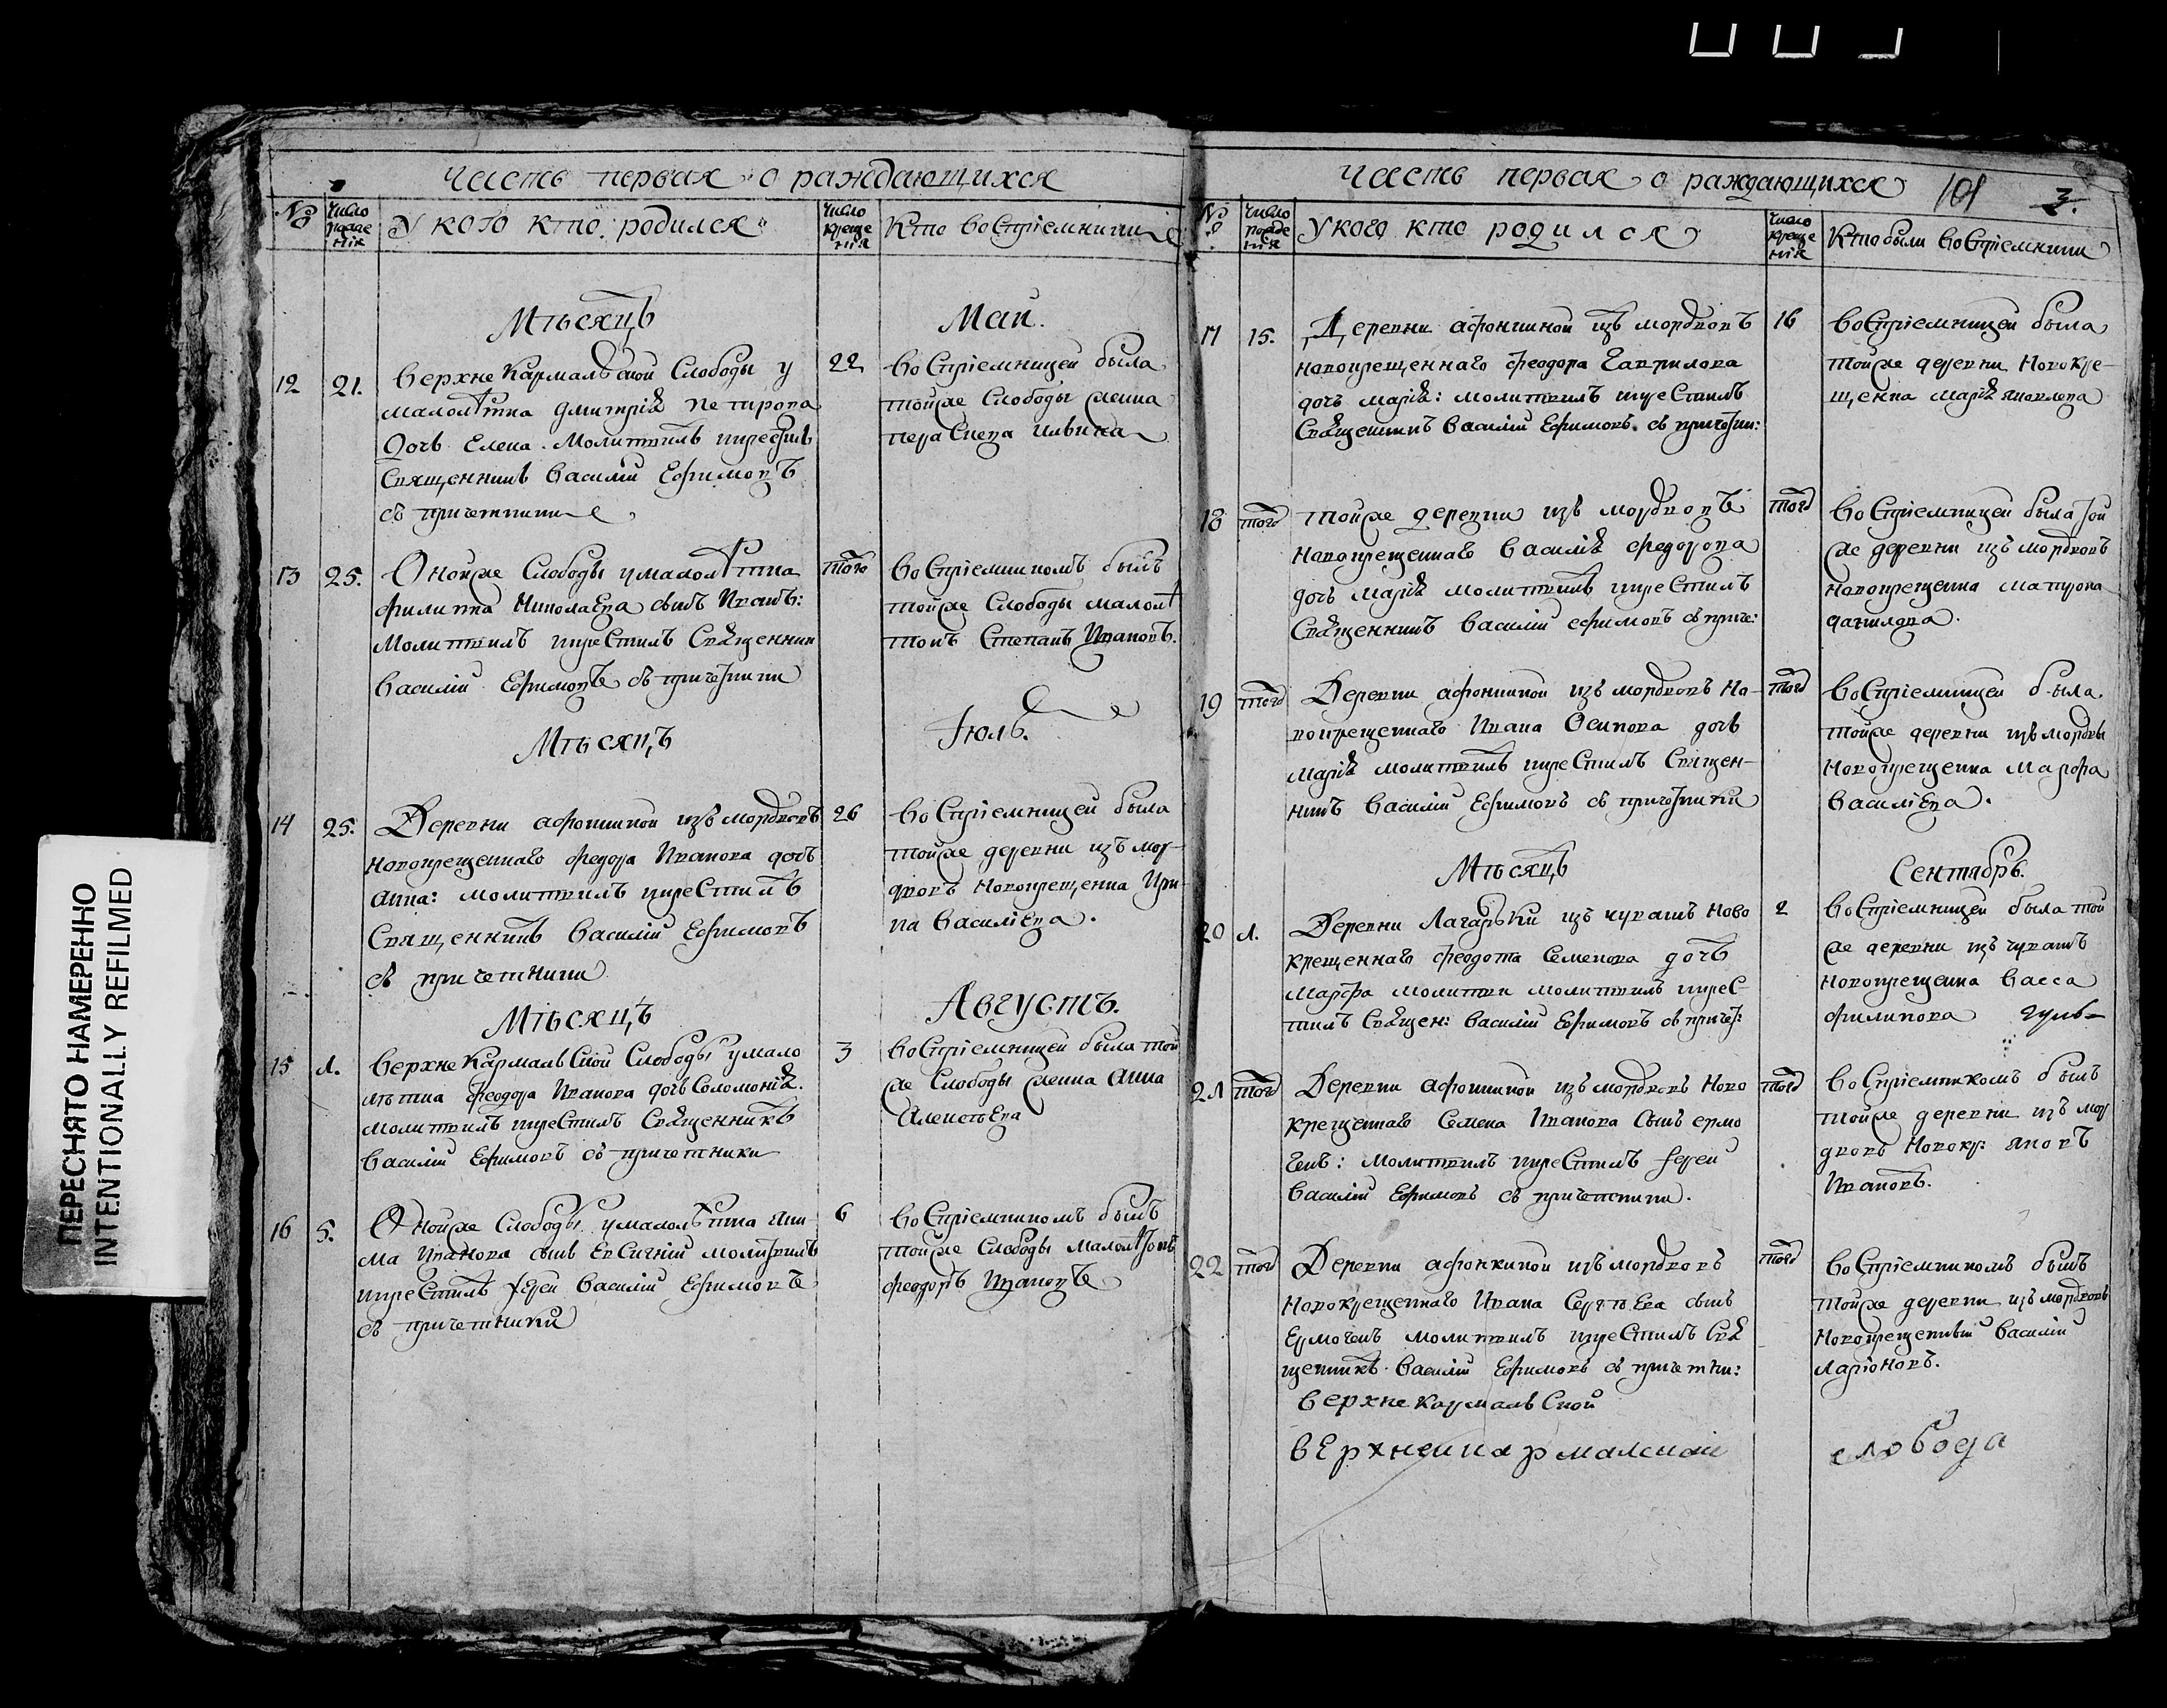 ПЕРЕСНЯТО НАМЕРЕННО
INTENTIONALLY REFILMED
Часть первая о раждающихся
№
Число рождения
У кого кто родился
Число крещения
Кто восприемники
Мѣсяцъ
Май.
12
21.
Верхне Кармальской Слободы у
малолѣтка Дмитрія Петрова
дочь Елена. Молитвилъ и крестилъ
Священникъ Василій Ефимовъ
съ причетники
22
Восприемницей была
тойже Слободы женка
13
25.
Онойже Слободы у малолѣтка
Филиппа Николаева сынъ Иванъ:
Молитвилъ и крестилъ Священник
Василій Ефимовъ съ причетники
того
Восприемникомъ былъ
тойже Слободы малолѣ
токъ Степанъ Ивановъ.
Мѣсяцъ
Іюль.
14
25.
Деревни Афонкиной изъ мордвовъ
новокрещеннаго Федора Иванова дочь
Анна: молитвилъ и крестилъ
Священникъ Василій Ефимовъ
съ причетники
26
Восприемницей была
тойже деревни изъ мор-
двовъ новокрещенка Ири-
на Василіева.
Мѣсяцъ
Августъ.
15
1.
Верхне Кармальской Слободы у мало
лѣтка Феодора Иванова дочь Соломонія.
молитвилъ и крестилъ Священникъ
Василій Ефимовъ съ причетники
3
Восприемницей была той
же Слободы женка Анна
Алексѣева
16
5.
Онойже Слободы у малолѣтка Яки-
ма Иванова сынъ Евсигній молитвилъ
и крестилъ Іерей Василій Ефимовъ
съ причетники
6
Восприемникомъ былъ
тойже Слободы малолѣтокъ
Феодоръ Ивановъ
Часть первая о раждающихся
101
3.
№
Число рождения
У кого кто родился
Число крещенія
Кто были восприемники
17
15.
Деревни Афонкиной изъ мордвовъ
новокрещеннаго Феодора Гаврилова
дочь Марія: молитвилъ и крестилъ
Священникъ Василій Ефимовъ съ причетни:
16
Восприемницей была
тойже деревни Новокре-
щенка Марія Яковлева
18
того
Тойже деревни изъ мордвовъ
новокрещеннаго Василія Федорова
дочь Марія молитвилъ и крестилъ
Священникъ Василій Ефимовъ съ приче:
того
Восприемницей была той
же деревни изъ мордвовъ
новокрещенка Матрона
Данилова.
19
того
Деревни Афонкиной изъ мордвовъ но-
вокрещеннаго Ивана Осипова дочь
Марія молитвилъ и крестилъ Священ-
никъ Василій Ефимовъ съ причетники
того
Восприемницей была
тойже деревни изъ мордвы
новокрещенка Марфа
Василіева.
Мѣсяцъ
Сентябрь.
20
1.
Деревни Лагарьки изъ чувашъ ново
крещеннаго Феодота Семенова дочь
Марфа молитви молитвилъ и крес-
тилъ Священ: Василій Ефимовъ съ причет:
2
Восприемницей была той
же деревни изъ чувашъ
новокрещенка Васса
Филипова
21
того
Деревни Афонкиной изъ мордвовъ Ново
крещеннаго Семена Иванова сынъ Ермо
генъ: молитвилъ и крестилъ Іерей
Василій Ефимовъ съ причетники.
того
Восприемникомъ былъ
тойже деревни изъ мор
двовъ Новокр: Яковъ
Ивановъ.
22
того
Деревни Афонкиной изъ мордвовъ
Новокрещеннаго Ивана Сергѣева сынъ
Ермогенъ молитвилъ и крестилъ Свя
щенникъ Василій Ефимовъ съ причетни:
того
Восприемникомъ былъ
тойже деревни изъ мордвовъ
новокрещенный Василій
Ларіоновъ.
Верхне Кармальской
Верхнекармалской слобода